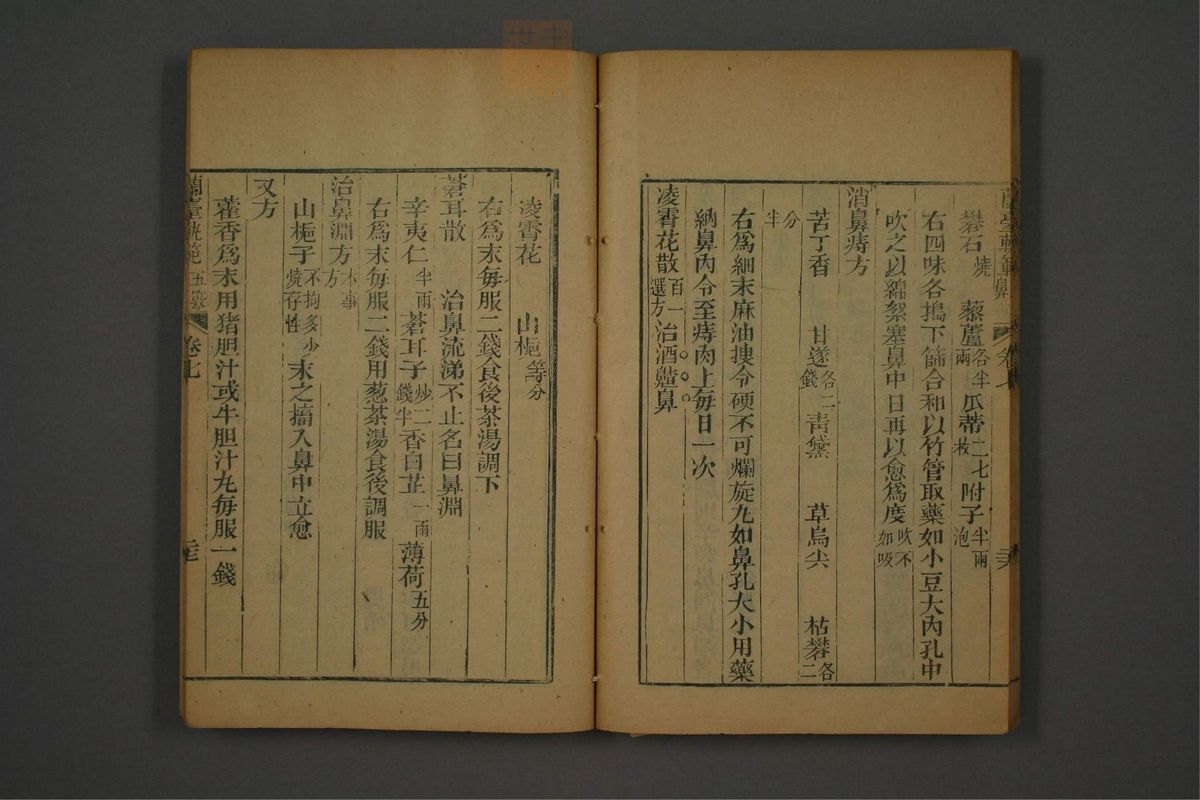 蘭臺軌範 鼻 卷七 二六
礬石燒 藜蘆各半兩 瓜蒂二七枚 附子半兩泡
右四味各搗下篩合和以竹管取藥如小豆大內孔中
吹之以綿絮塞鼻中日再以愈爲度吹不如吸
消鼻痔方
苦丁香 甘遂各二錢 青黛 草烏尖 枯礬各二
分半
右爲細末麻油搜令硬不可爛旋丸如鼻孔大小用藥
納鼻內令至痔肉上每日一次
凌霄花散百一選方治酒齄鼻
凌霄花 山梔等分
右爲末每服二錢食後茶湯調下
蒼耳散 治鼻流涕不止名曰鼻淵
辛夷仁半兩 蒼耳子炒二錢半 香白芷一兩 薄荷五分
右爲末每服二錢用葱茶湯食後調服
治鼻淵方本事方
山梔子不拘多少燒存性 末之搐入鼻中立愈
又方
藿香爲末用猪胆汁或牛胆汁丸每服一錢
蘭臺軌範 卷七 二七